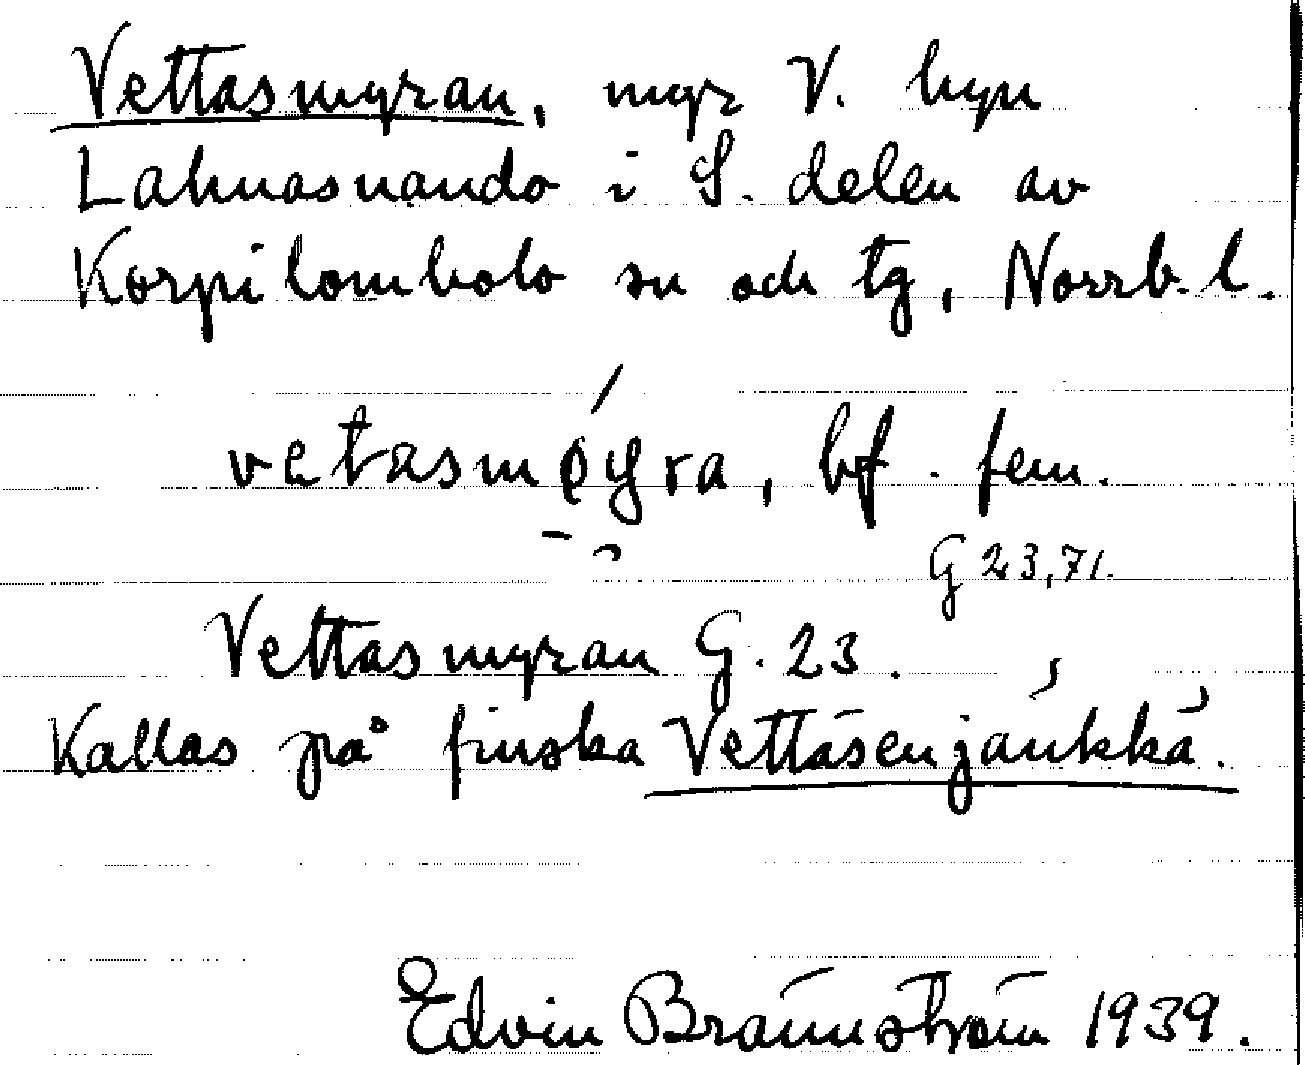 Vettasmyran, myr V. byn
Lahnasuando i S. delen av
Korpilombolo sn och tg, Norrb. l.
vetasmøyra, bf. fem.
G 23,71.
Vettasmyran G. 23.
Kallas på finska Vettäsenjänkkä.
Edvin Brännström 1939.